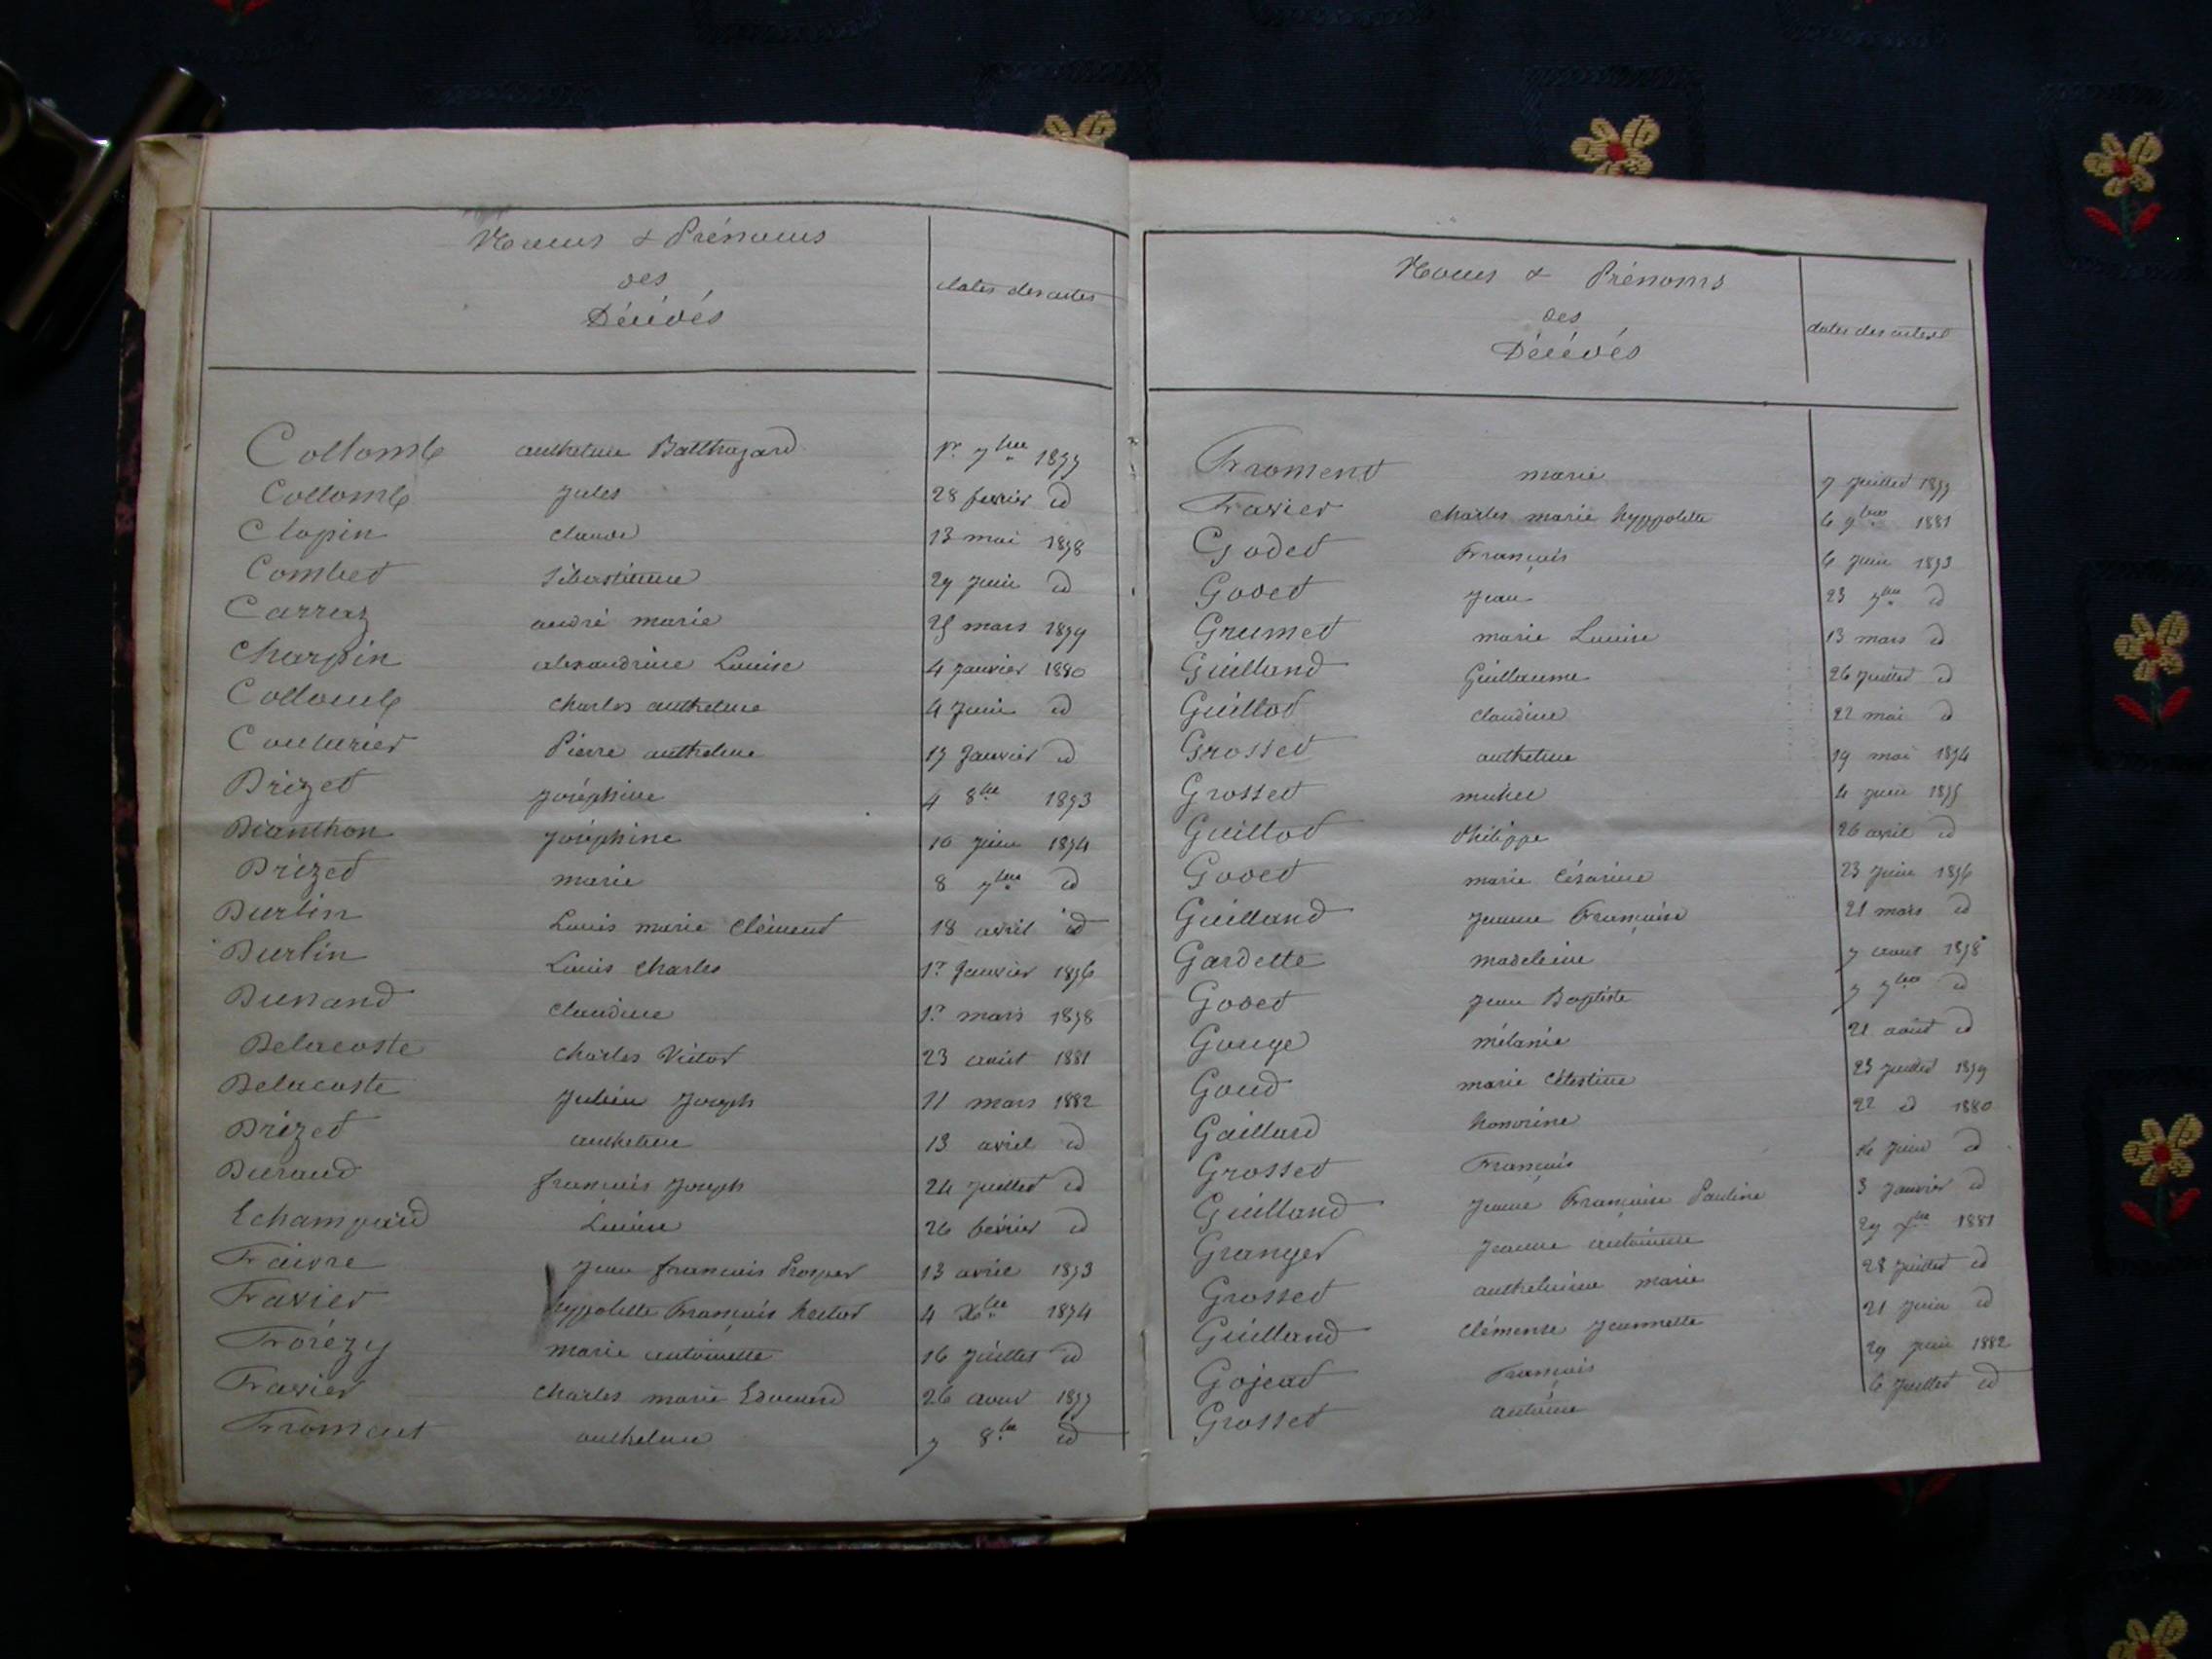 Noms & Prénoms
des
Décédés
dates des actes
Collomb anthelme Balthazard 1er 7bre 1877
Collomb Jules 28 fevrier id
Clapin claude 13 mai 1878
Combet Sébastienne 29 juin id
Carraz andré marie 25 mars 1879
Charpin alexandrine Louise 4 janvier 1880
Collomb charles anthelme 4 juin id
Couturier Pierre anthelme 17 Janvier id
Drizet Joséphine 4 8bre 1873
Dianthon Joséphine 10 juin 1874
Drizet marie 8 7bre id
Durlin Louis marie Clément 18 avril id
Durlin Louis charles 1er Janvier 1876
Dunand claudine 1er mars 1878
Delacoste charles Victor 23 août 1881
Delacoste Julien Joseph 11 mars 1882
Drizet anthelme 13 avril id
Durand françois Joseph 24 juillet id
Echampard Louise 26 février id
Faivre Jean françois Prosper 13 avril 1873
Favier hyppolitte François hector 4 Xbre 1874
Forézy marie antoinette 16 juillet id
Favier charles marie Edouard 26 aout 1877
Froment anthelme 7 8bre id
Noms & Prénoms
des
Décédés
dates des actes
Froment marie 7 juillet 1877
Favier charles marie hyppolitte 6 9bre 1881
Godet François 6 juin 1873
Godet Jean 23 7bre id
Grumet marie Louise 13 mars id
Guilland Guillaume 26 juillet id
Guillot claudine 22 mai id
Grosset anthelme 19 mai 1874
Grosset michel 4 juin 1875
Guillot Philippe 26 avril id
Godet marie Césarine 23 juin 1876
Guilland Jeanne Françoise 21 mars id
Gardette madeleine 7 aout 1878
Godet Jean Baptiste 7 7bre id
Gouge mélanie 21 août id
Goud marie Célestine 23 juillet 1879
Gaillard honorine 22 id 1880
Grosset François juin id
Guilland Jeanne Françoise Pauline 3 Janvier id
Granger Jeanne antoinette 29 Xbre 1881
Grosset anthelmine marie 28 juillet id
Guilland Clémense Jeannette 21 juin id
Gojeat François 29 juin 1882
Grosset antoine 6 juillet id